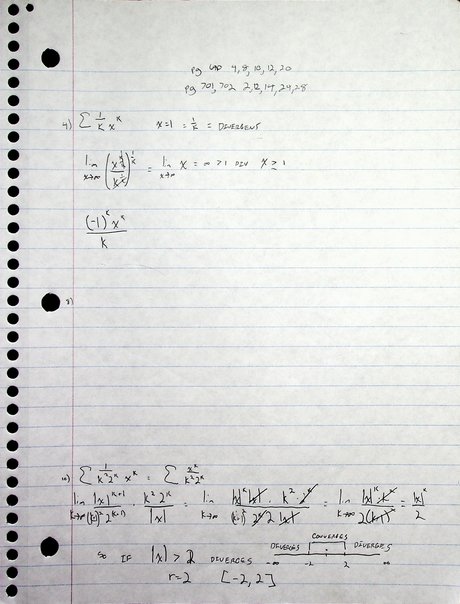 pg 4,8,10,12,20
pg 701,702 2,12,14,24,28
4) Σ 1/k x^k x=1 = 1/k = DIVERGENT
lim x→∞ (x^k/k)^(1/k) = lim x→∞ x = ∞ > 1 DIV x ≥ 1
(-1)^k x^k / k
8)
10) Σ 1/(k²2^k) x^k = Σ x^k/(k²2^k)
lim k→∞ |x|^(k+1)/((k+1)² 2^(k+1)) · k² 2^k/|x| = lim k→∞ |x|^k |x|/((k+1)² 2^k 2) · k²/|x| = lim k→∞ |x|^k k²/(2(k+1)²) = |x|^k/2
CONVERGES
So IF |x| > 2 DIVERGES DIVERGES DIVERGES
-∞ -2 2 ∞
r=2 [-2,2]